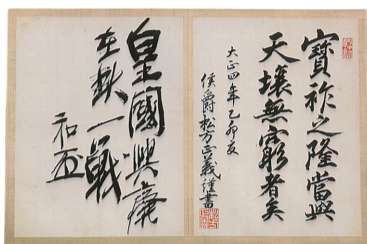 寶祚之隆當與
天壤無窮者矣
大正四年乙卯夏
侯爵松方正義謹書
皇國興廢
在此一戰